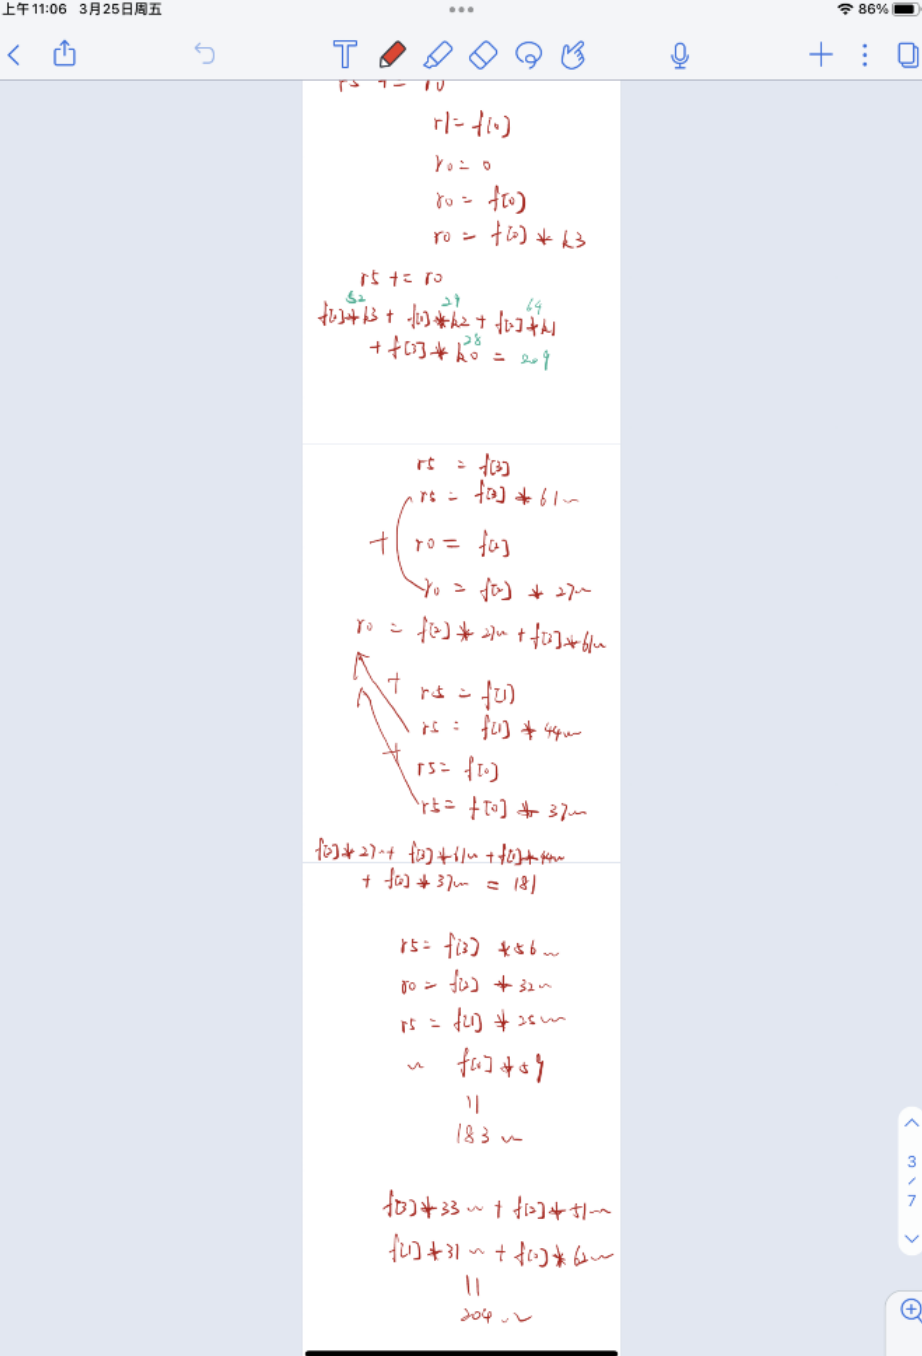 上午11:06 3月25日周五
86%
T
r5 += r0
r1 = f[0]
r0 = 0
r0 = f[0]
r0 = f[0] * k3
r5 += r0
52 29 64
f[0]*k3 + f[1]*k2 + f[2]*k1
28
+ f[3]*k0 = 209
r5 = f[3]
r5 = f[3] * 61~
+ r0 = f[2]
r0 = f[2] * 27~
r0 = f[2]*27~ + f[3]*61~
+ r5 = f[1]
r5 = f[1] * 44~
+
r5 = f[0]
r5 = f[0] * 37~
f[2]*27~ + f[3]*61~ + f[1]*44~
+ f[0]*37~ = 181
r5 = f[3] *56~
r0 = f[2] * 32~
r5 = f[1] * 25~
~ f[0]*59
||
183 ~
f[3]*33~ + f[2]*51~
f[1]*31~ + f[0]*62~
||
204 ~
3
/
7